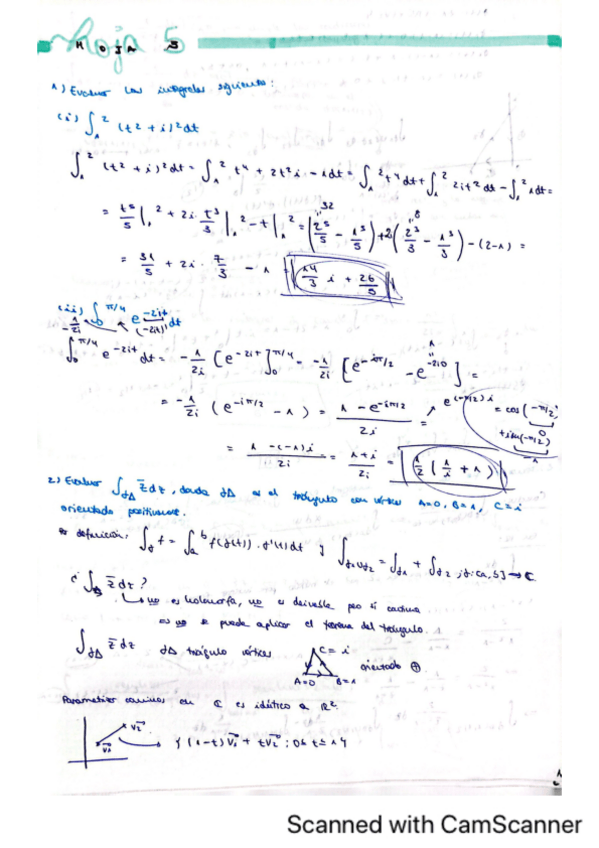 Hoja 5
H O J A 5
1) Evaluar las integrales siguientes:
(i) ∫₁² (t² + i)² dt
∫₁² (t² + i)² dt = ∫₁² t⁴ + 2t²i − 1 dt = ∫₁² t⁴ dt + ∫₁² 2it² dt − ∫₁² 1 dt =
= t⁵/5 |₁² + 2i t³/3 |₁² − t |₁² = (2⁵/5 − 1⁵/5) + 2(2³/3 − 1³/3) − (2−1) =
= 31/5 + 2i · 7/3 − 1 = 14/3 i + 26/5
(ii) ∫₀^π/4 e^−2it dt
∫₀^π/4 e^−2it dt = −1/2i [e^−2it]₀^π/4 = −1/2i [e^−iπ/2 − e^−2i0] =
= −1/2i (e^−iπ/2 − 1) = 1 − e^−iπ/2 / 2i = e^(−π/2)i = cos(−π/2) + i sen(−π/2)
= 1 − (−1)i / 2i = 1+i / 2i = 1/2 (1/i + 1)
2) Evaluar ∫∂Δ z̄ dz, donde ∂Δ es el triángulo con vértices A=0, B=1, C=i
orientado positivamente.
definición: ∫γ f = ∫ₐᵇ f(γ(t)) · γ'(t) dt y ∫γ₁∪γ₂ = ∫γ₁ + ∫γ₂, γ: [a,b] → ℂ
¿∫ z̄ dz?
no es holomorfa, no es derivable pero sí continua
no se puede aplicar el teorema del triángulo.
∫∂Δ z̄ dz ∂Δ triángulo vértices C = i A=0 B=1 orientado ⊕
Parametrizar caminos en ℂ es idéntico a ℝ².
v₁ v₂ {(1−t)v₁ + tv₂ : 0≤ t ≤ 1}
1
Scanned with CamScanner